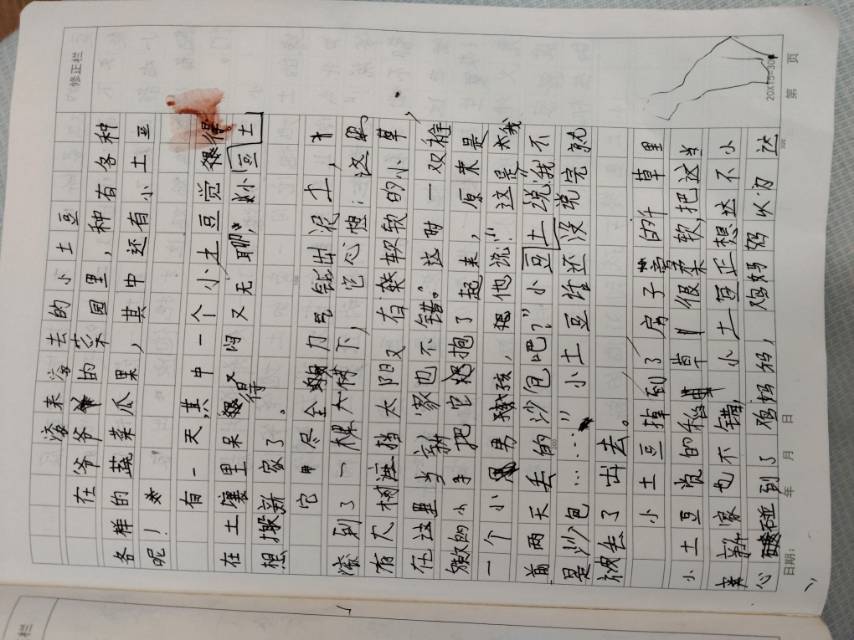 修正栏
滚来滚去的小土豆
在爷爷的菜园里，种有各种
各样的蔬菜瓜果，其中还有小土豆
呢！
有一天，其中一个小土豆觉得
在土壤里呆得又闷又无聊，小土豆
想搬新家了。
它用尽全力气钻出泥土，
滚到了一棵大树下，它心想：这里
有大树遮挡太阳又有软软的小草
在这里当新家也不错。这时一双稚
嫩的小手把它抱了起来，原来是
一个小男孩，他说：“这是我
前两天丢的沙包吧？”小土豆说“我不
是沙包……”小土豆话还没说完就
被丢了出去。
小土豆掉到了房子旁的草里
小土豆觉的草很柔软，把这当
新家也不错，小土豆正想这不小
心碰到了鸡妈妈，鸡妈妈以为这
日期： 年 月 日
20X15=300 第 页
修正栏